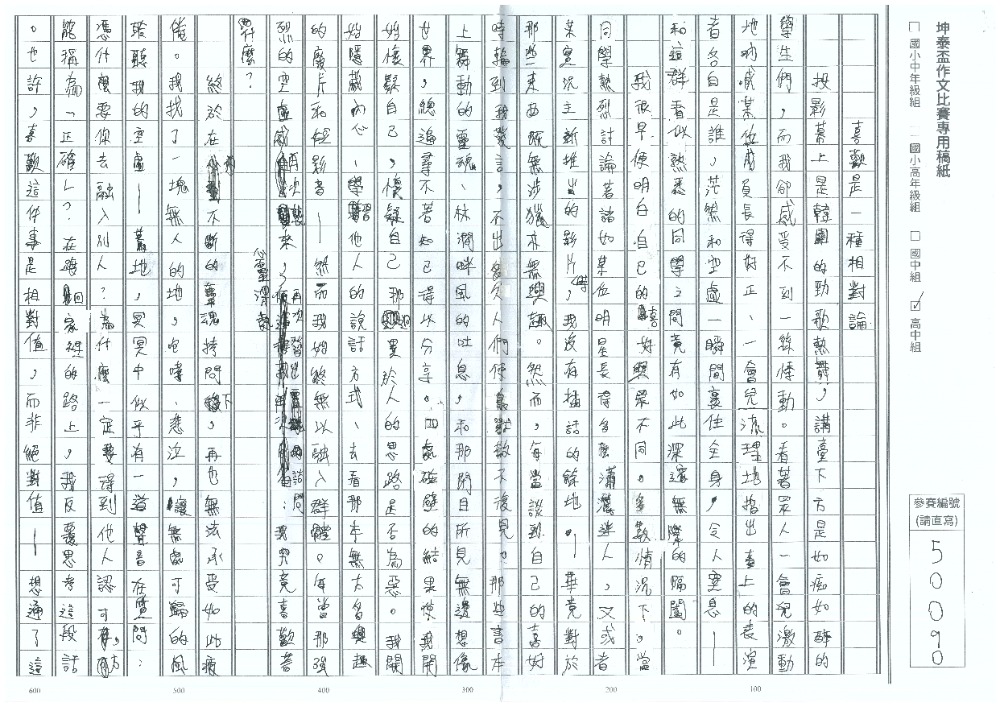 坤泰盃作文比賽專用稿紙
□ 國小中年級組 □ 國小高年級組 □ 國中組 ☑ 高中組
參賽編號
(請直寫)
50090
喜歡是一種相對論
投影幕上是韓團的勁歌熱舞，講臺下方是如痴如醉的
學生們，而我卻感受不到一絲悸動。看著眾人一會兒激動
地吶喊某位成員長得好正、一會兒流理地指出臺上的表演
者各自是誰，茫然和空虛一瞬間裹住全身，令人窒息——
和這群看似熟悉的同學之間竟有如此深邃無際的隔閡。
我很早便明白自己的喜好與眾不同。多數情況下，當
同學熱烈討論著諸如某位明星長得多麼瀟灑迷人，又或者
某實況主新推出的影片時，我沒有插話的餘地。——畢竟對於
那些東西既無涉獵亦無興趣。然而，每當談到自己的喜好
時輪到我發言，不出多久人們便意興不復見。那些書本
上舞動的靈魂、林澗畔風的吐息，和那閉目所見無邊想像
世界，總遍尋不著知己得以分享。四處碰壁的結果使我開
始懷疑自己，懷疑自己那異於人的思路是否為惡。我開
始隱藏內心、學習他人的說話方式、去看那本無太多興趣
的影片和經影者——然而我始終無以融入群體。每當那強
烈的空虛感再次襲來，心靈深處再次
：我究竟喜歡著
什麼？
終於在不斷的靈魂拷問下，再也無法承受如此疲
倦。我找了一塊無人的地，咆哮、悲泣，讓無處可歸的風
聆聽我的空虛——驀地，冥冥中似乎有一道聲音在質問：
憑什麼要你去融入別人？為什麼一定要得到他人認可，方
能稱需「正確」？在踏回家裡的路上，我反覆思考這段話
。也許，喜歡這件事是相對值，而非絕對值——想通了這
100
200
300
400
500
600